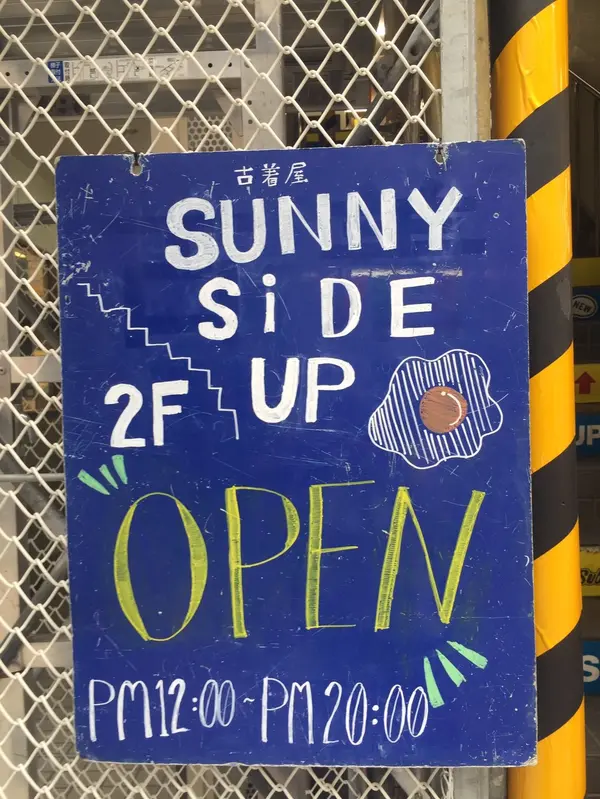 古着屋
SUNNY
SiDE
UP
2F
OPEN
PM12:00~PM20:00
NEW
UP
S